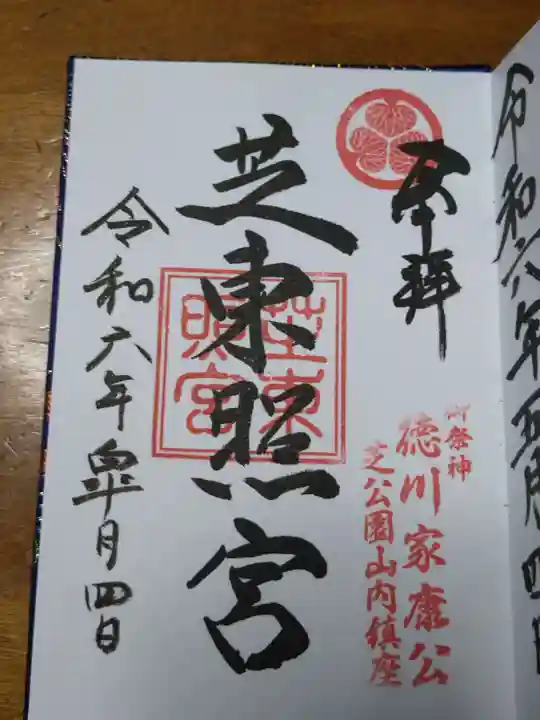 令和六年五月四日
奉拝
御祭神
徳川家康公
芝公園山内鎮座
芝東照宮
芝東
照宮
令和六年皐月四日